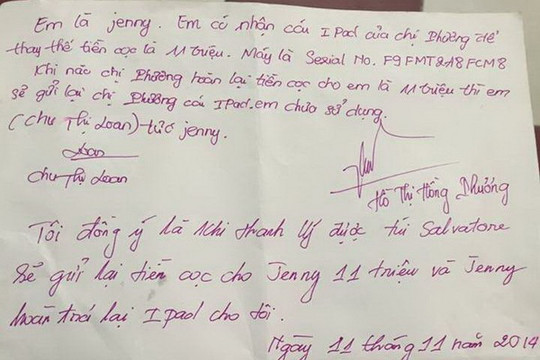 Em là jenny. Em có nhận cái IPad của chị Phương để
thay thế tiền cọc là 11 triệu. Máy là Serial No. F9FMT2A8FCM8
Khi nào chị Phương hoàn lại tiền cọc cho em là 11 triệu thì em
sẽ gửi lại chị Phương cái IPad. em chưa sử dụng.
(Chu Thị Loan) - tức jenny.
Loan
Chu Thị Loan
Hồ Thị Hồng Phương
Tôi đồng ý là khi thanh lý được túi Salvatore
sẽ gửi lại tiền cọc cho Jenny 11 triệu và Jenny
hoàn trả lại Ipad cho tôi.
Ngày 11 tháng 11 năm 2014